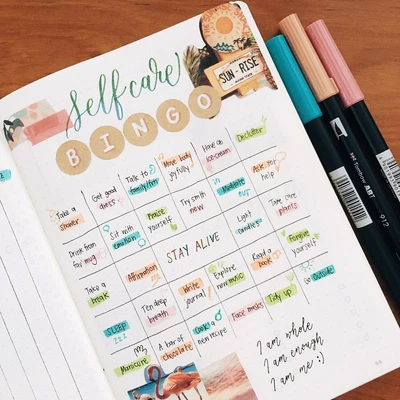 Self care
BINGO
SUN-RISE
Take a
shower
Get good
dress
Talk to
family/
Move body
joyfully
Have an
ice-cream
Declutter
Drink from
fav mug
Sit with
emotion
Praise
yourself
Try smth
new
Meditate
Ask for
help
Take a
break
Affirmation
STAY ALIVE
Light
candles
Take care
plants
SLEEP
zzz
Ten deep
breath
Write
journal
Explore
new music
Read a
book
Forgive
yourself
Manicure
A bar of
chocolate
Cook a
new recipe
Face masks
Tidy up
Go Outside
I am whole
I am enough
I am me :)
Tombow ABT
912